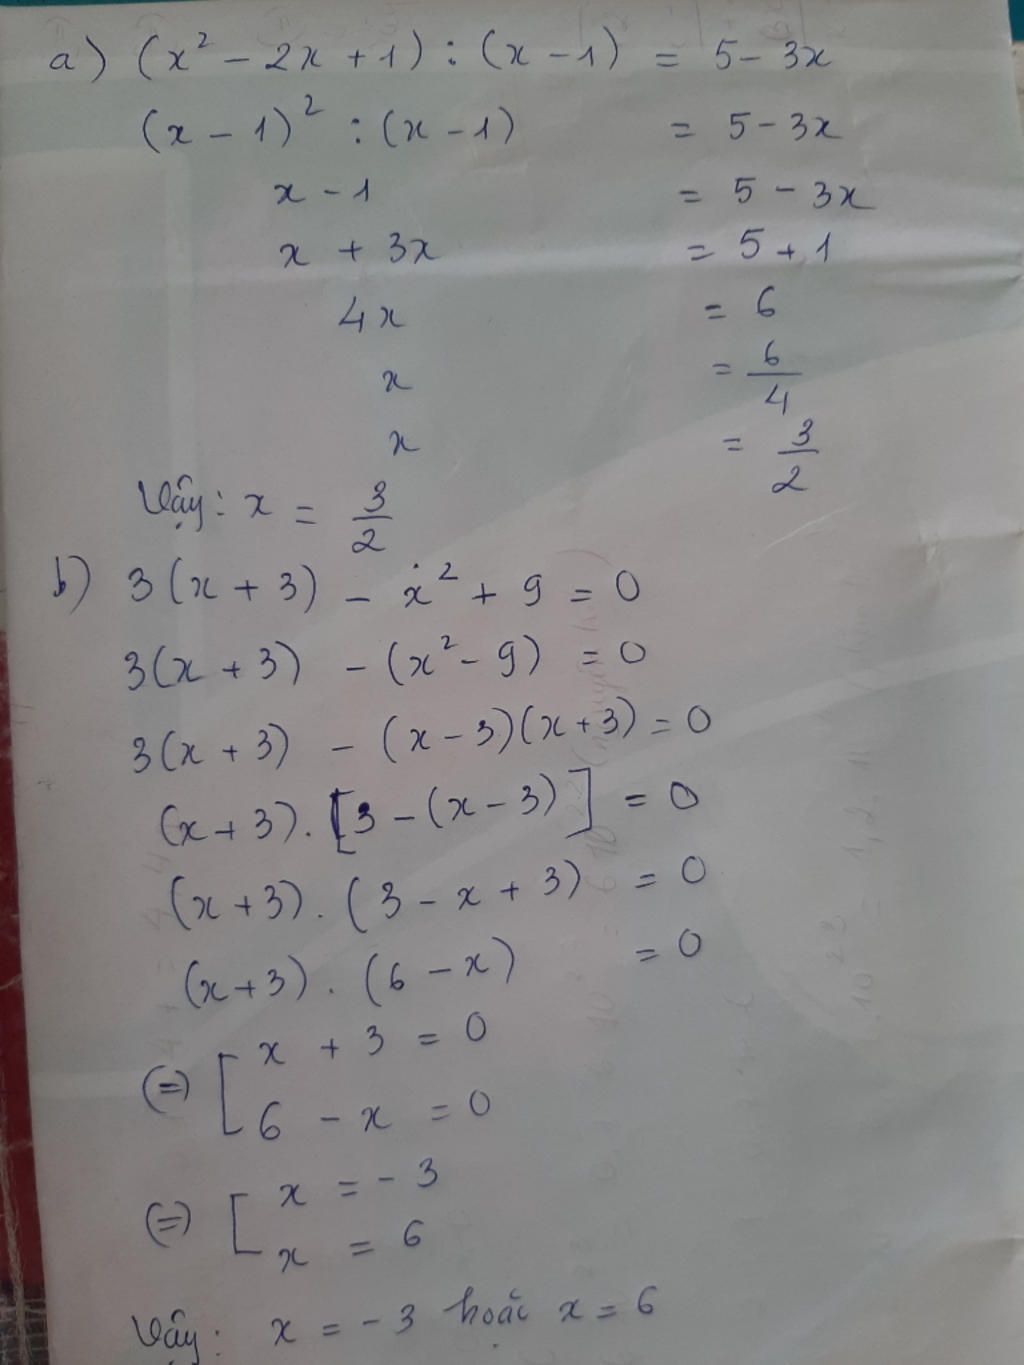 a) (x² - 2x + 1) : (x - 1) = 5 - 3x
(x - 1)² : (x - 1) = 5 - 3x
x - 1 = 5 - 3x
x + 3x = 5 + 1
4x = 6
x = 6/4
x = 3/2
Vậy: x = 3/2
b) 3(x + 3) - x² + 9 = 0
3(x + 3) - (x² - 9) = 0
3(x + 3) - (x - 3)(x + 3) = 0
(x + 3) . [3 - (x - 3)] = 0
(x + 3) . (3 - x + 3) = 0
(x + 3) . (6 - x) = 0
(=) [ x + 3 = 0
6 - x = 0
(=) [ x = - 3
x = 6
Vậy: x = - 3 hoặc x = 6